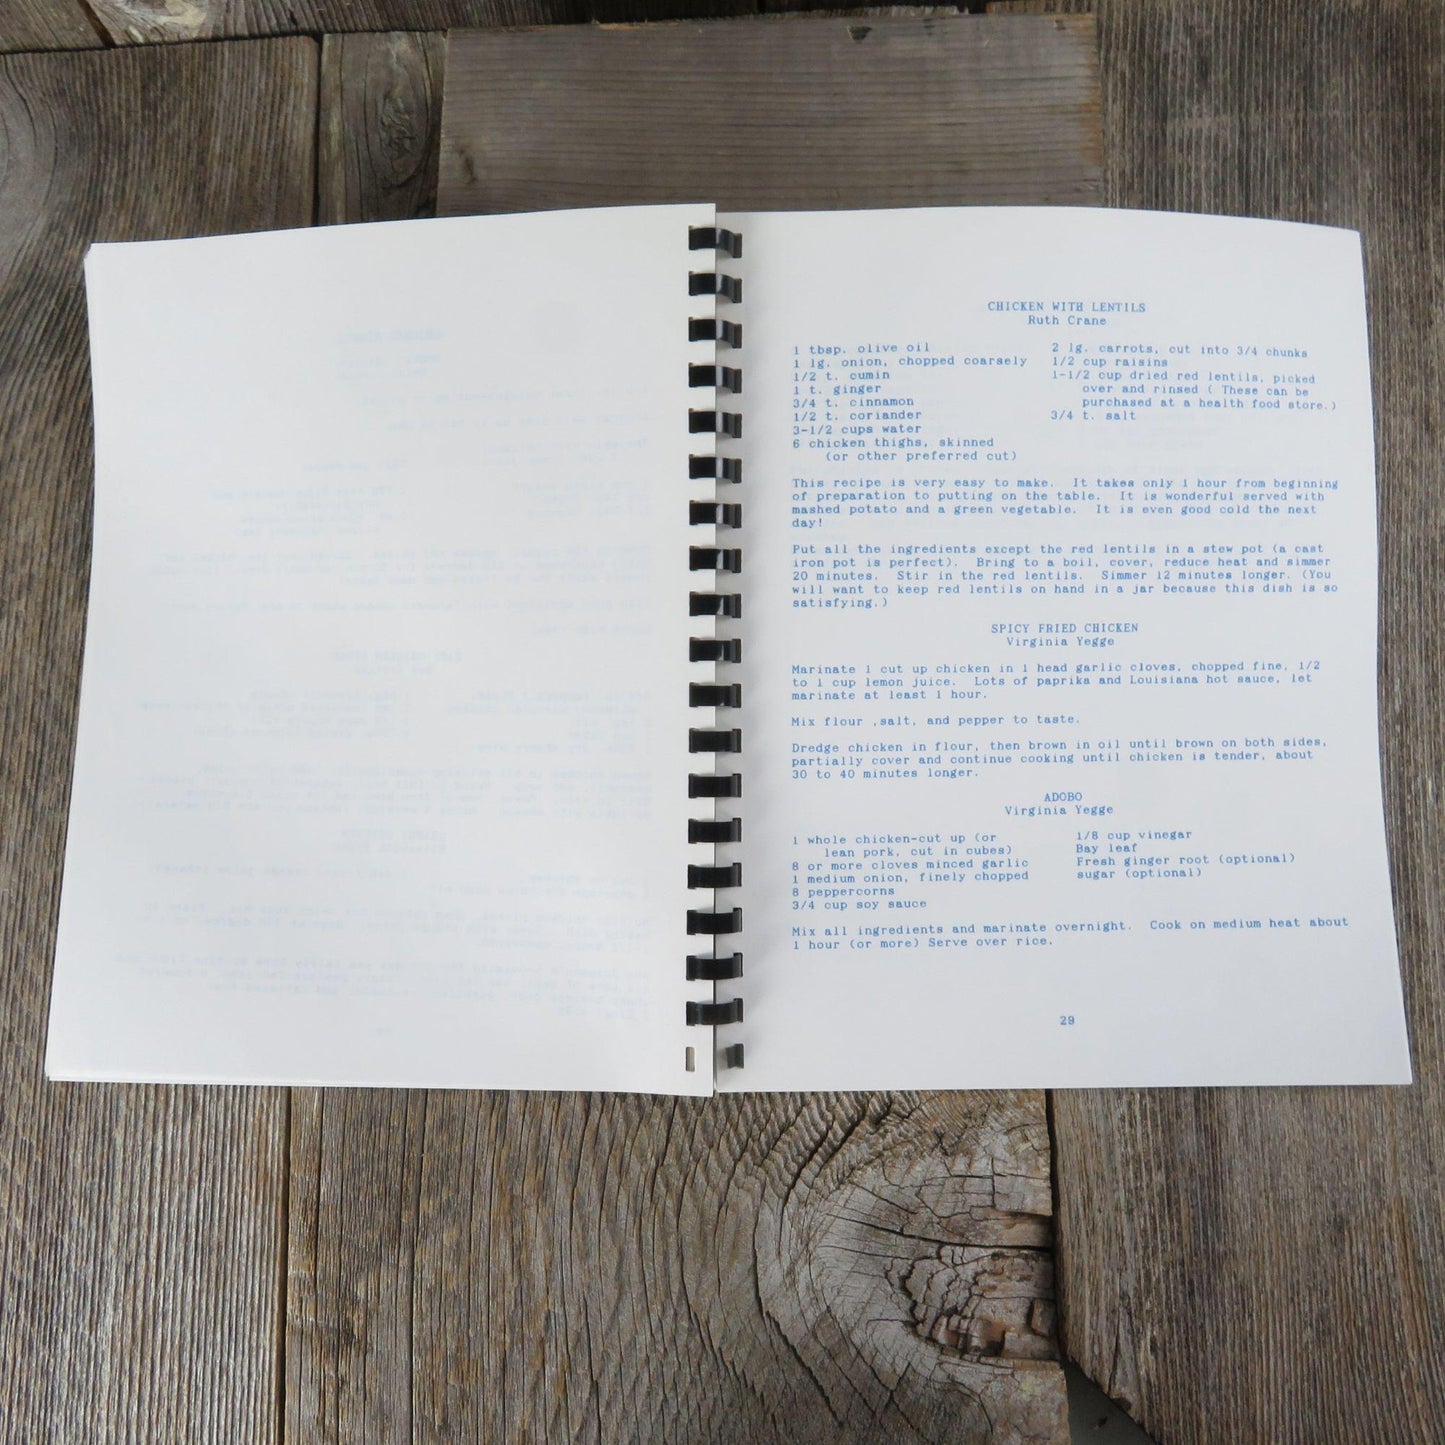 CHICKEN WITH LENTILS
Ruth Crane
1 tbsp. olive oil
1 lg. onion, chopped coarsely
1/2 t. cumin
1 t. ginger
3/4 t. cinnamon
1/2 t. coriander
3-1/2 cups water
6 chicken thighs, skinned
(or other preferred cut)
2 lg. carrots, cut into 3/4 chunks
1/2 cup raisins
1-1/2 cup dried red lentils, picked
over and rinsed ( These can be
purchased at a health food store.)
3/4 t. salt
This recipe is very easy to make. It takes only 1 hour from beginning
of preparation to putting on the table. It is wonderful served with
mashed potato and a green vegetable. It is even good cold the next
day!
Put all the ingredients except the red lentils in a stew pot (a cast
iron pot is perfect). Bring to a boil, cover, reduce heat and simmer
20 minutes. Stir in the red lentils. Simmer 12 minutes longer. (You
will want to keep red lentils on hand in a jar because this dish is so
satisfying.)
SPICY FRIED CHICKEN
Virginia Yegge
Marinate 1 cut up chicken in 1 head garlic cloves, chopped fine, 1/2
to 1 cup lemon juice. Lots of paprika and Louisiana hot sauce, let
marinate at least 1 hour.
Mix flour ,salt, and pepper to taste.
Dredge chicken in flour, then brown in oil until brown on both sides,
partially cover and continue cooking until chicken is tender, about
30 to 40 minutes longer.
ADOBO
Virginia Yegge
1 whole chicken-cut up (or
lean pork, cut in cubes)
8 or more cloves minced garlic
1 medium onion, finely chopped
8 peppercorns
3/4 cup soy sauce
1/8 cup vinegar
Bay leaf
Fresh ginger root (optional)
sugar (optional)
Mix all ingredients and marinate overnight. Cook on medium heat about
1 hour (or more) Serve over rice.
29